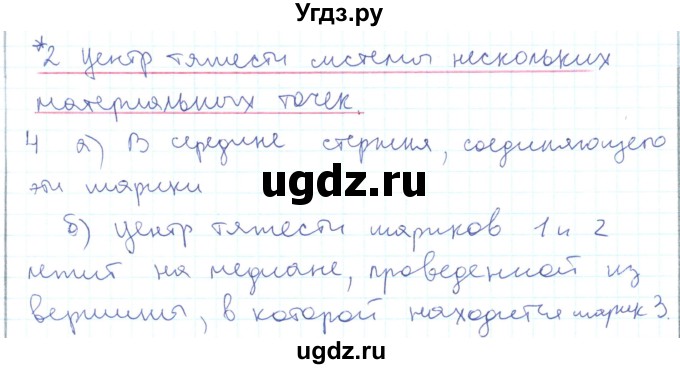 Угдз.ру
*2 Центр тяжести системы нескольких
материальных точек.
4 а) В середине стержня, соединяющего
эти шарики
ugdz.ru
б) Центр тяжести шариков 1 и 2
лежит на медиане, проведенной из
вершины, в которой находится шарик 3.
ugdz.ru